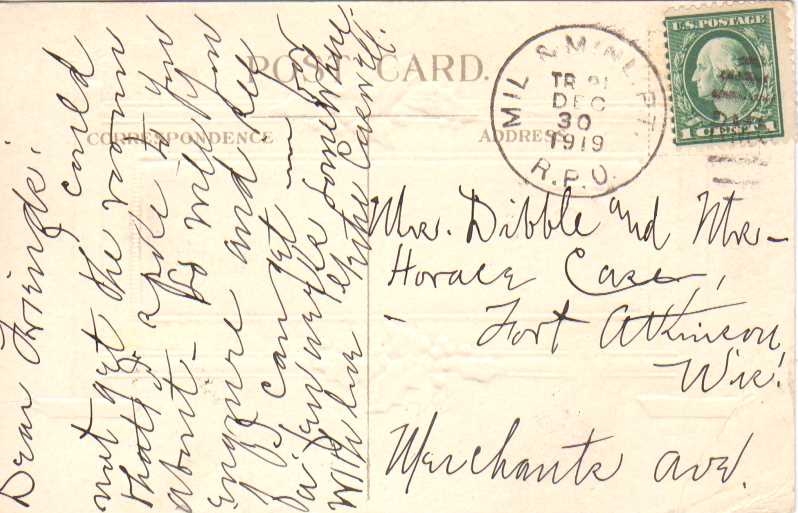 POST CARD.
CORRESPONDENCE
ADDRESS
U.S. POSTAGE
1 CENT 1
MIL. & MINL. PT.
TR 21
DEC
30
1919
R.P.O.
Dear Friends:
I could
not get the rooms
that I spoke to you
about - So will you
enquire and see
if I can get in for
a few weeks somewhere.
With love Caswell.
Mrs. Dibble and Mrs -
Horace Case,
Fort Atkinson,
Wis.
Merchants Ave.